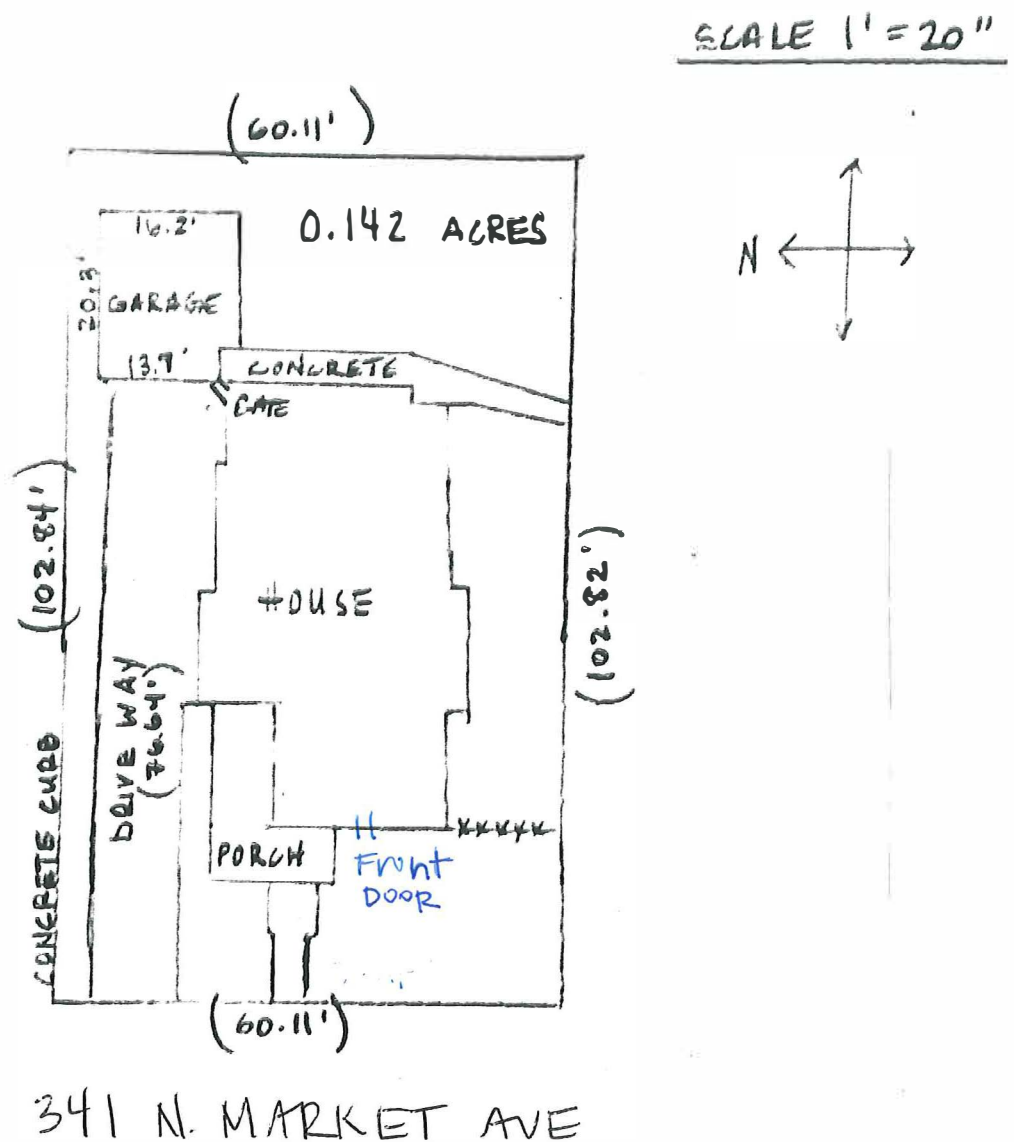 SCALE 1' = 20"
(60.11')
16.2'
0.142 ACRES
N
20.3'
GARAGE
13.7'
CONCRETE
GATE
(102.84')
HOUSE
(102.82')
DRIVE WAY
(76.64')
CONCRETE CURB
PORCH
Front
DOOR
(60.11')
341 N. MARKET AVE